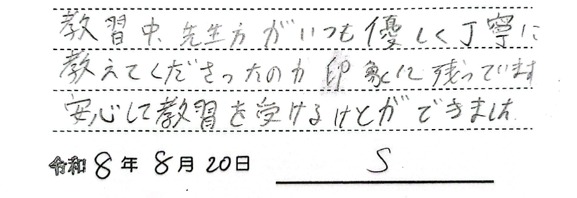 教習中、先生方がいつも優しく丁寧に
教えてくださったのが印象に残っています
安心して教習を受けるけとができました
令和8年8月20日 S